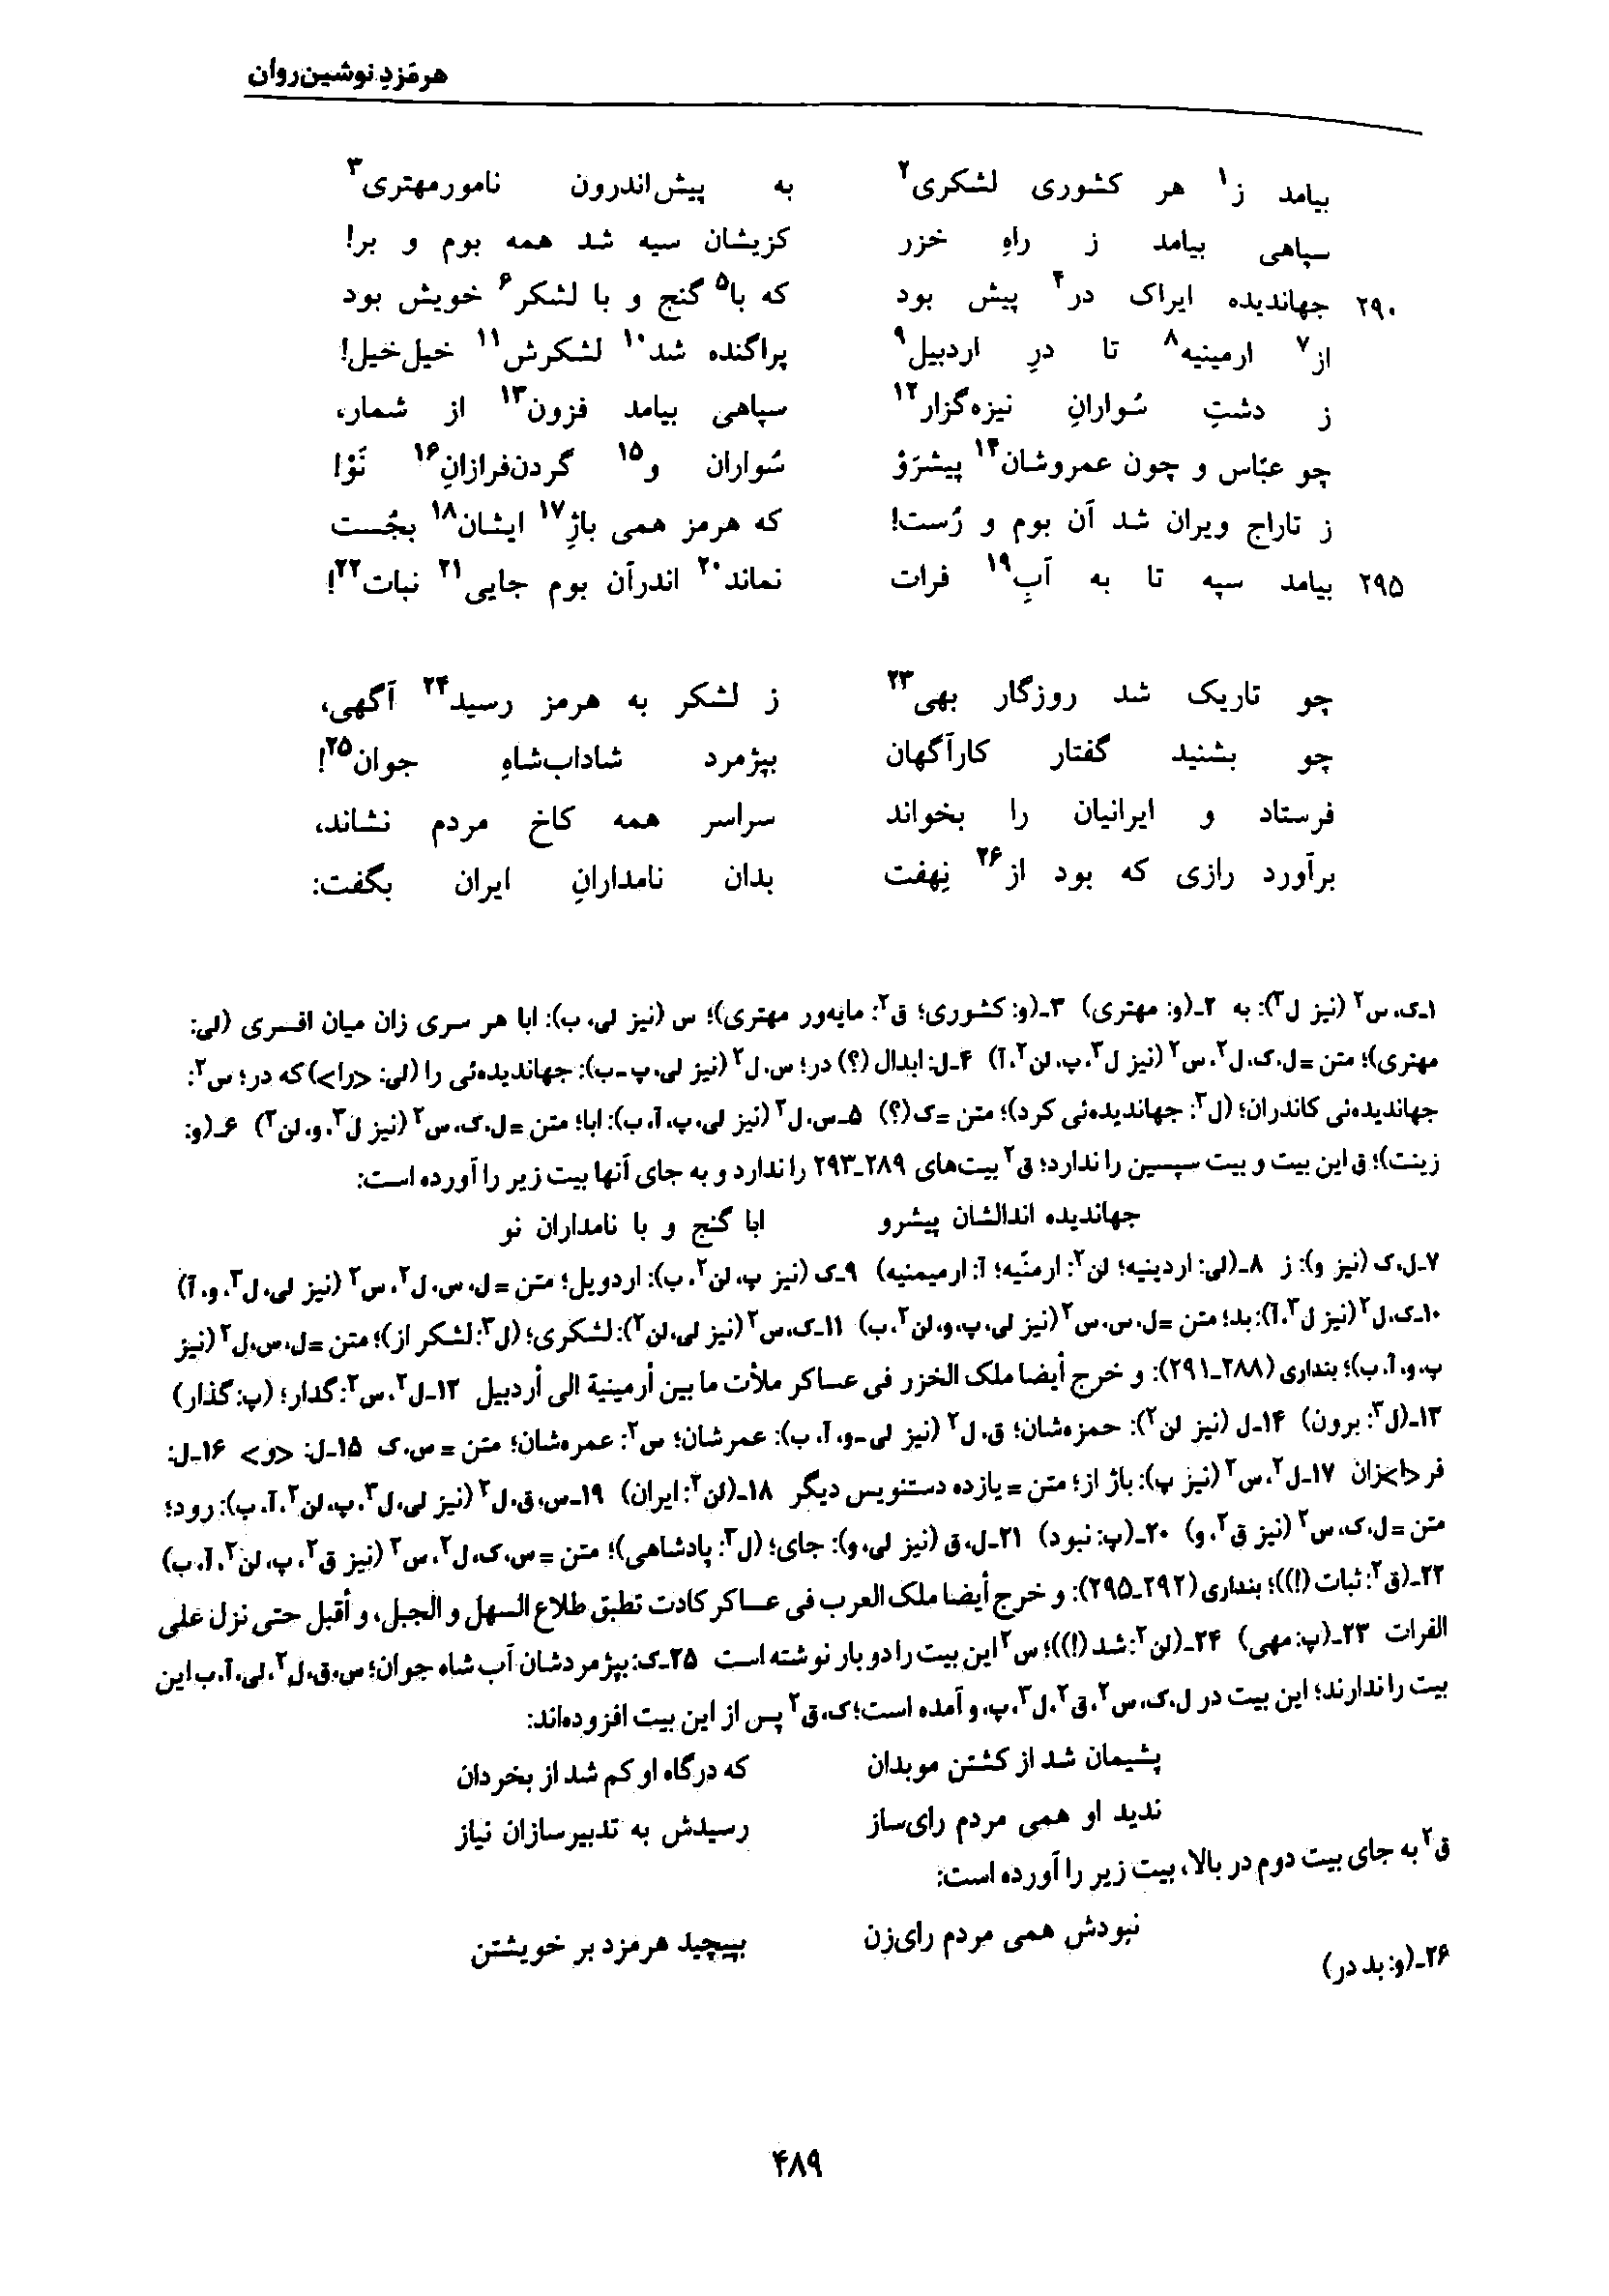 هرمَزدِ نوشین‌روان
بیامد ز۱ هر کشوری لشکری۲ به پیش‌اندرون نامورمهتری۳
سپاهی بیامد ز راهِ خزر کزیشان سیه شد همه بوم و بر!
۲۹۰ جهاندیده ایراک در۴ پیش بود که با۵ گنج و با لشکر۶ خویش بود
از۷ ارمینیه۸ تا درِ اردبیل۹ پراگنده شد۱۰ لشکرش۱۱ خیل‌خیل!
ز دشتِ سُوارانِ نیزه‌گزار۱۲ سپاهی بیامد فزون۱۳ از شمار،
چو عبّاس و چون عمروشان۱۴ پیشرَوْ سُواران و۱۵ گردن‌فرازانِ۱۶ نَوْ!
ز تاراج ویران شد آن بوم و رُست! که هرمز همی باژِ۱۷ ایشان۱۸ بجُست
۲۹۵ بیامد سپه تا به آبِ۱۹ فرات نماند۲۰ اندرآن بوم جایی۲۱ نبات۲۲!
چو تاریک شد روزگار بهی۲۳ ز لشکر به هرمز رسید۲۴ آگهی،
چو بشنید گفتار کارآگهان بپژمرد شاداب‌شاهِ جوان۲۵!
فرستاد و ایرانیان را بخواند سراسر همه کاخ مردم نشاند،
برآورد رازی که بود از۲۶ نِهفت بدان نامدارانِ ایران بگفت:
۱ـک، س۲ (نیز ل۳): به ۲ـ(و: مهتری) ۳ـ(و: کشوری؛ ق۲: مایه‌ور مهتری)؛ س (نیز لی، ب): ابا هر سری زان میان افسری (لی:
مهتری)؛ متن =ل، ک، ل۲، س۲ (نیز ل۳، پ، لن۲، آ) ۴ـل: ابدال (؟) در؛ س، ل۲ (نیز لی، پ-ب): جهاندیده‌ئی را (لی: <را>) که در؛ س۲:
جهاندیده‌ئی کاندران؛ (ل۳: جهاندیده‌ئی کرد)؛ متن =ک(؟) ۵ـس، ل۲ (نیز لی، پ، آ، ب): ابا؛ متن =ل، ک، س۲ (نیز ل۳، و، لن۲) ۶ـ(و:
زینت)؛ ق این بیت و بیت سپسین را ندارد؛ ق۲ بیت‌های ۲۸۹ـ۲۹۳ را ندارد و به جای آنها بیت زیر را آورده است:
جهاندیده اندالشان پیشرو ابا گنج و با نامداران نو
۷ـل، ک (نیز و): ز ۸ـ(لی: اردینیه؛ لن۲: ارمنّیه؛ آ: ارمیمنیه) ۹ـک (نیز پ، لن۲، ب): اردویل؛ متن =ل، س، ل۲، س۲ (نیز لی، ل۳، و، آ)
۱۰ـک، ل۲ (نیز ل۳، آ): بد؛ متن =ل، س، س۲ (نیز لی، پ، و، لن۲، ب) ۱۱ـک، س۲ (نیز لی، لن۲): لشکری؛ (ل۳: لشکر از)؛ متن =ل، س، ل۲ (نیز
پ، و، آ، ب)؛ بنداری (۲۸۸ـ۲۹۱): و خرج أیضا ملک الخزر فی عساکر ملأت ما بین أرمینیة الی أردبیل ۱۲ـل۲، س۲: گدار؛ (پ: گذار)
۱۳ـ(ل۳: برون) ۱۴ـل (نیز لن۲): حمزه‌شان؛ ق، ل۲ (نیز لی-و، آ، ب): عمرشان؛ س۲: عمره‌شان؛ متن = س، ک ۱۵ـل: <و> ۱۶ـل:
فر<ا>زان ۱۷ـل۲، س۲ (نیز پ): باژ از؛ متن = یازده دستنویس دیگر ۱۸ـ(لن۲: ایران) ۱۹ـس، ق، ل۲ (نیز لی، ل۳، پ، لن۲، آ، ب): رود؛
متن =ل، ک، س۲ (نیز ق۲، و) ۲۰ـ(پ: نبود) ۲۱ـل، ق (نیز لی، و): جای؛ (ل۳: پادشاهی)؛ متن =س، ک، ل۲، س۲ (نیز ق۲، پ، لن۲، آ، ب)
۲۲ـ(ق۲: ثبات (!))؛ بنداری (۲۹۲ـ۲۹۵): و خرج أیضا ملک العرب فی عساکر کادت تطبق طلاع السهل و الجبل، و أقبل حتی نزل علی
الفرات ۲۳ـ(پ: مهی) ۲۴ـ(لن۲: شد (!))؛ س۲ این بیت را دو بار نوشته است ۲۵ـک: بپژمردشان آب شاه جوان؛ س، ق، ل۲، لی، آ، ب این
بیت را ندارند؛ این بیت در ل، ک، س۲، ق۲، ل۳، پ، و آمده است؛ ک، ق۲ پس از این بیت افزوده‌اند:
پشیمان شد از کشتن موبدان که درگاه او کم شد از بخردان
ندید او همی مردم رای‌ساز رسیدش به تدبیرسازان نیاز
ق۲ به جای بیت دوم در بالا، بیت زیر را آورده است:
نبودش همی مردم رای‌زن بپیچید هرمزد بر خویشتن
۲۶ـ(و: بد در)
۴۸۹